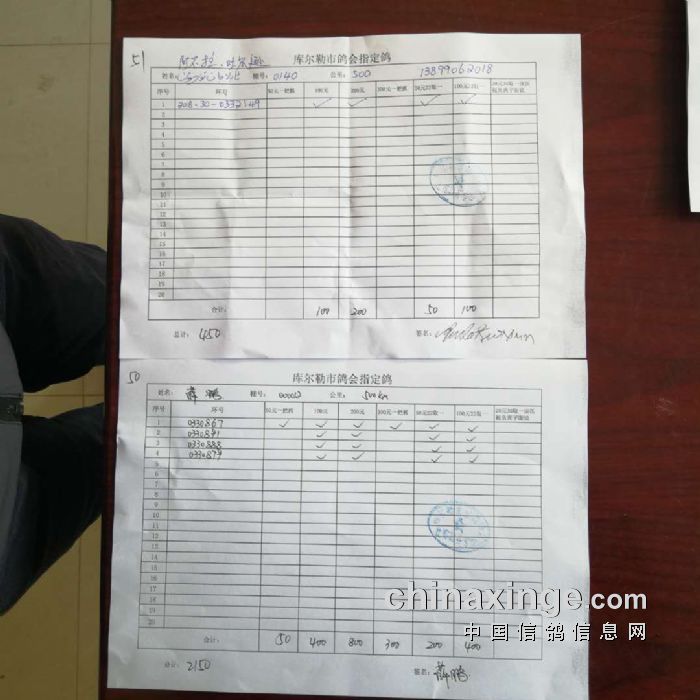 51
库尔勒市鸽会指定鸽
姓名: 棚号: 0140 公里: 500 13899062018
序号 环号 50元一把抓 100元 200元 300元一把抓 50元22取一 100元22取一
1 208-30-0332149 ✓ ✓ ✓ ✓
2
3
4
5
6
7
8
9
10
11
12
13
14
15
16
17
18
19
20
合计: 100 200 50 100
总计: 450 签名:
50
库尔勒市鸽会指定鸽
姓名: 薛鹏 棚号: 公里: 500km
序号 环号 50元一把抓 100元 200元 300元一把抓 50元22取一 100元22取一
1 0330867 ✓ ✓ ✓ ✓ ✓ ✓
2 0330841 ✓ ✓ ✓ ✓
3 0330888 ✓ ✓ ✓ ✓
4 0330879 ✓ ✓ ✓ ✓
5
6
7
8
9
10
11
12
13
14
15
16
17
18
19
20
合计: 50 400 800 300 200 400
合计: 2150 签名: 薛鹏
chinaxinge.com
中国信鸽信息网